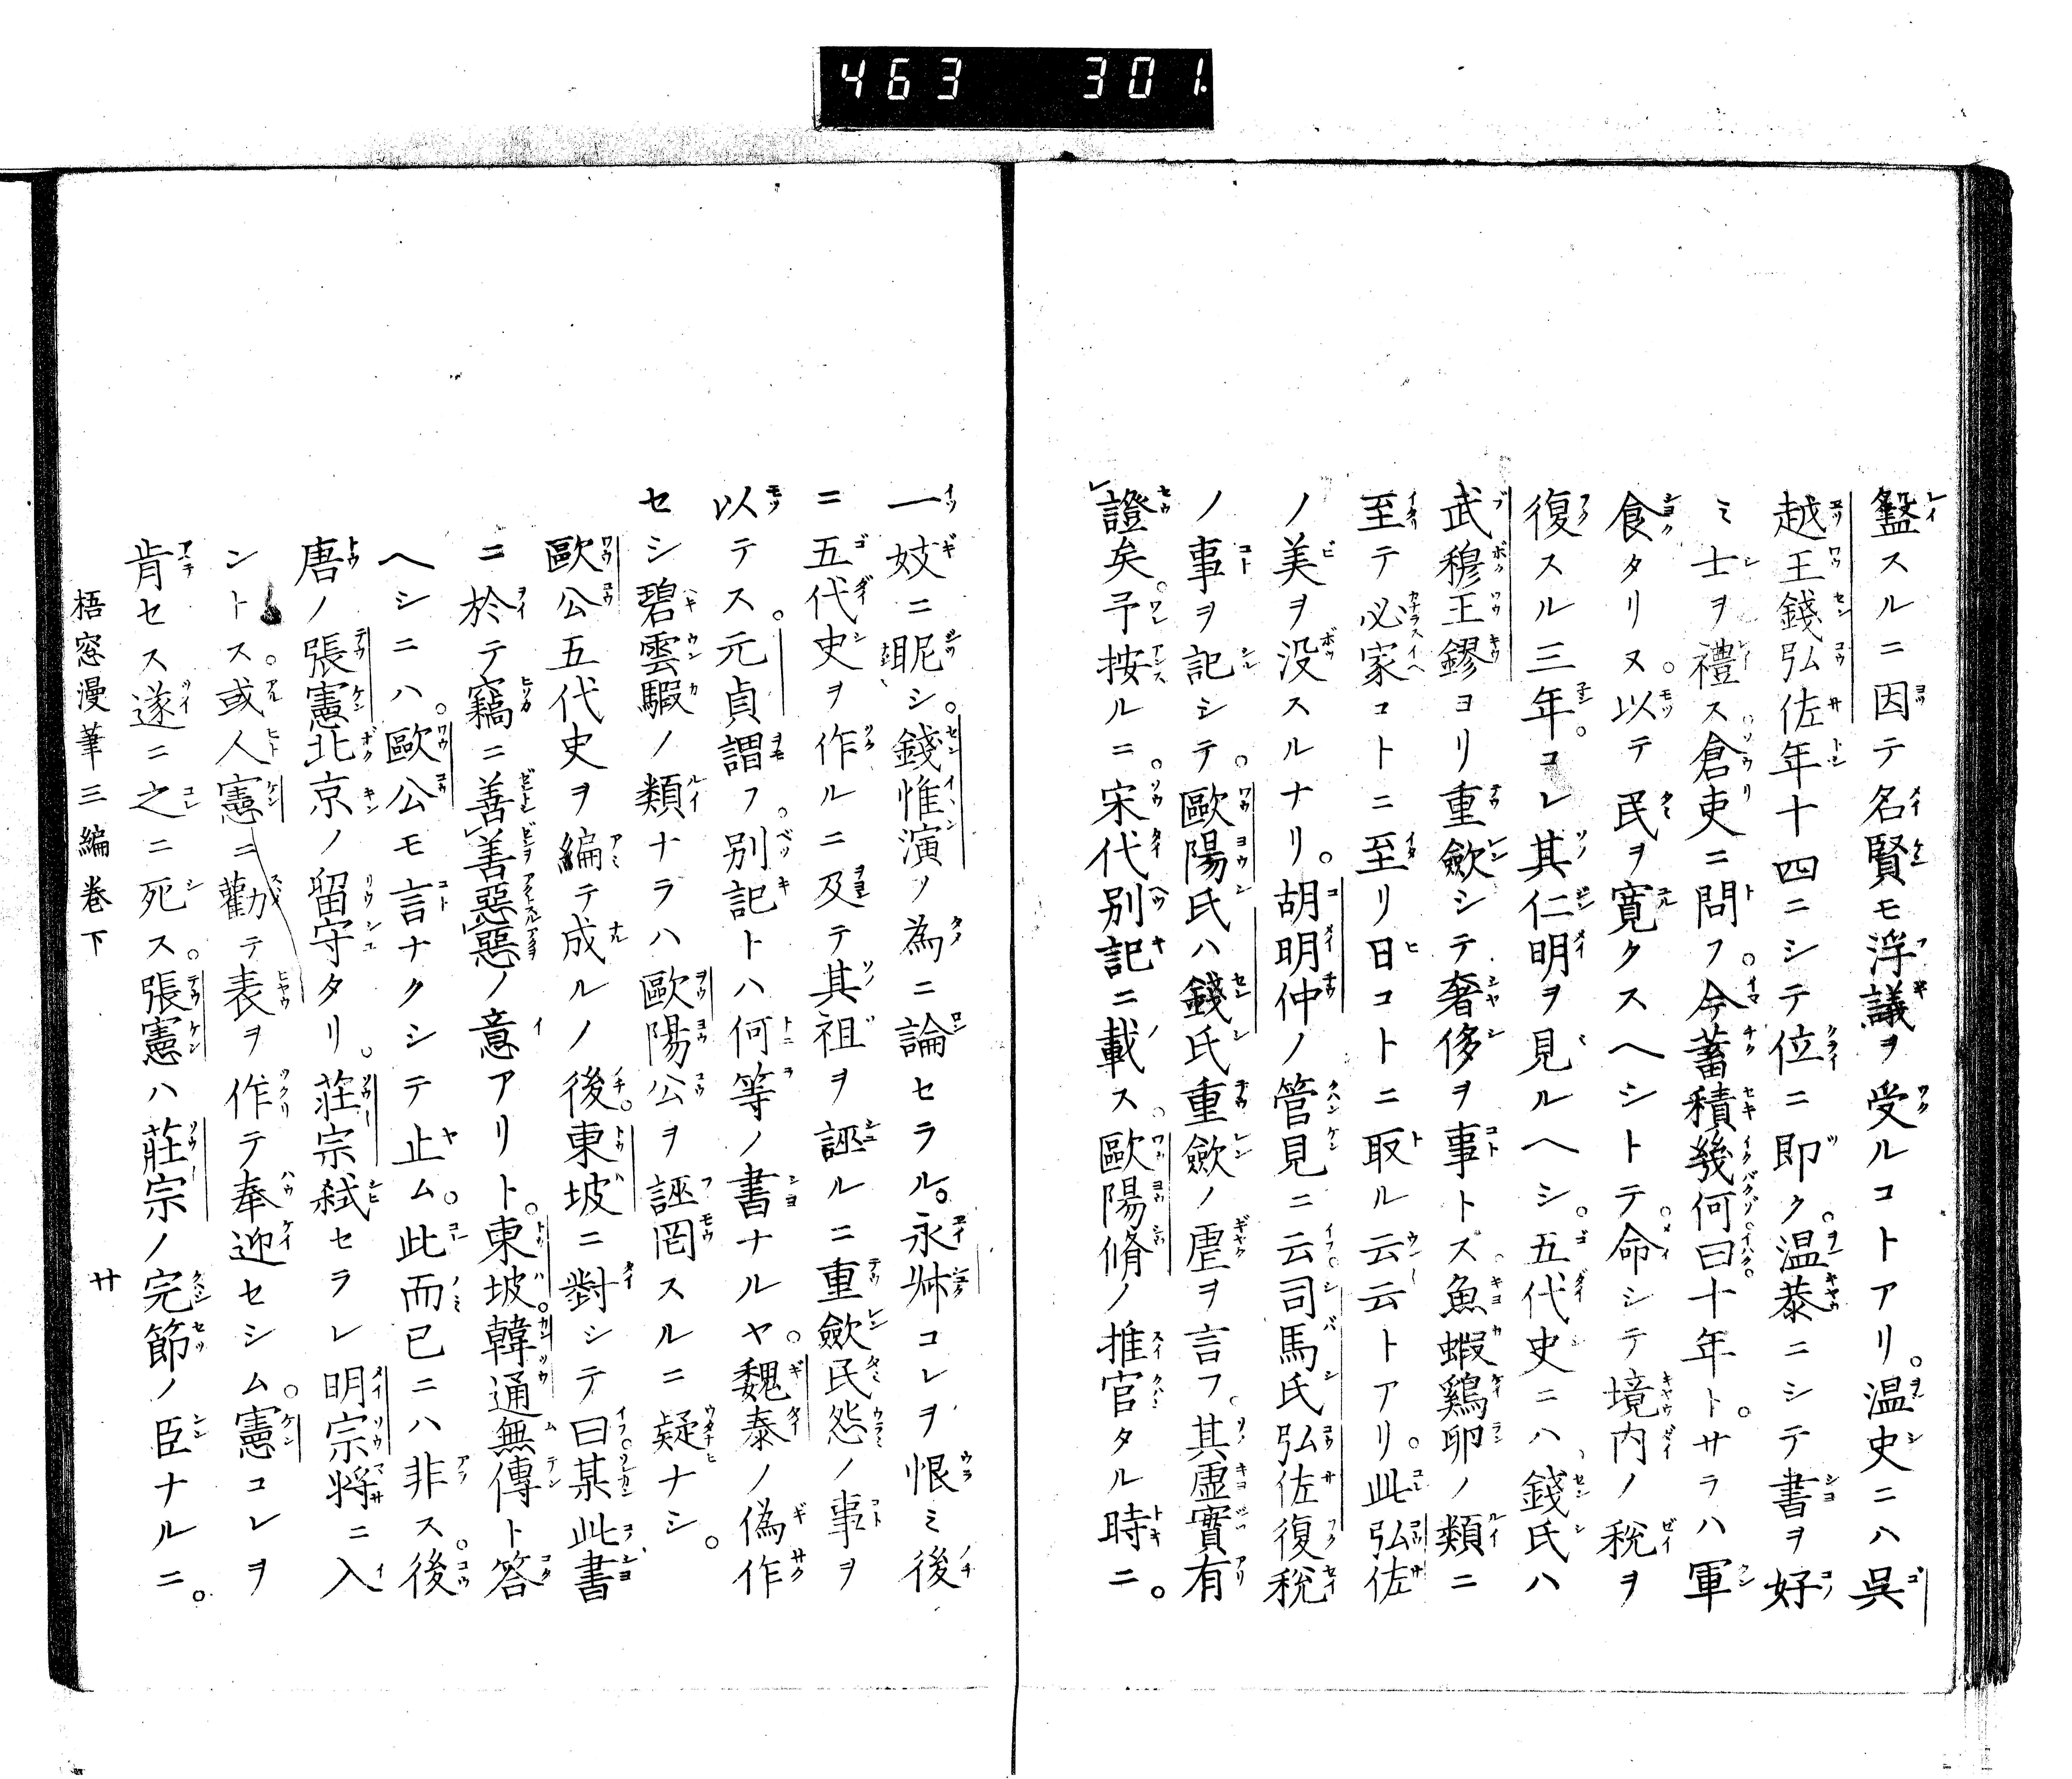 463 301.
盭スルニ因テ名賢モ浮議ヲ受ルコトアリ。温史ニハ呉
越王錢弘佐年十四ニシテ位ニ即ク。温恭ニシテ書ヲ好
ミ士ヲ禮ス倉吏ニ問フ。今蓄積幾何曰十年ト。サラハ軍
食タリヌ。以テ民ヲ寛クスヘシトテ。命シテ境内ノ税ヲ
復スル三年。コレ其仁明ヲ見ルヘシ。五代史ニハ錢氏ハ
武穆王鏐ヨリ重歛シテ奢侈ヲ事トズ魚蝦鷄卵ノ類ニ
至テ必家コトニ至リ日コトニ取ル云云トアリ。此弘佐
ノ美ヲ没スルナリ。胡明仲ノ管見ニ云司馬氏弘佐復税
ノ事ヲ記シテ。歐陽氏ハ錢氏重歛ノ虐ヲ言フ。其虚實有
證矣。予按ルニ。宋代別記ニ載ス。歐陽脩ノ推官タル時ニ。
一妓ニ昵シ。錢惟演ノ為ニ論セラル。永叔コレヲ恨ミ後
ニ五代史ヲ作ルニ及テ其祖ヲ誣ルニ重歛民怨ノ事ヲ
以テス。元貞謂フ。別記トハ何等ノ書ナルヤ。魏泰ノ偽作
セシ碧雲騢ノ類ナラハ歐陽公ヲ誣罔スルニ疑ナシ。
歐公五代史ヲ編テ成ルノ後。東坡ニ對シテ曰某此書
ニ於テ竊ニ善善惡惡ノ意アリト。東坡。韓通無傳ト答
ヘシニハ。歐公モ言ナクシテ止ム。此而已ニハ非ス。後
唐ノ張憲北京ノ留守タリ。荘宗弑セラレ明宗将ニ入
ントス。或人憲ニ勸テ表ヲ作テ奉迎セシム。憲コレヲ
肯セス遂ニ之ニ死ス。張憲ハ莊宗ノ完節ノ臣ナルニ。
梧窓漫筆三編卷下 廿